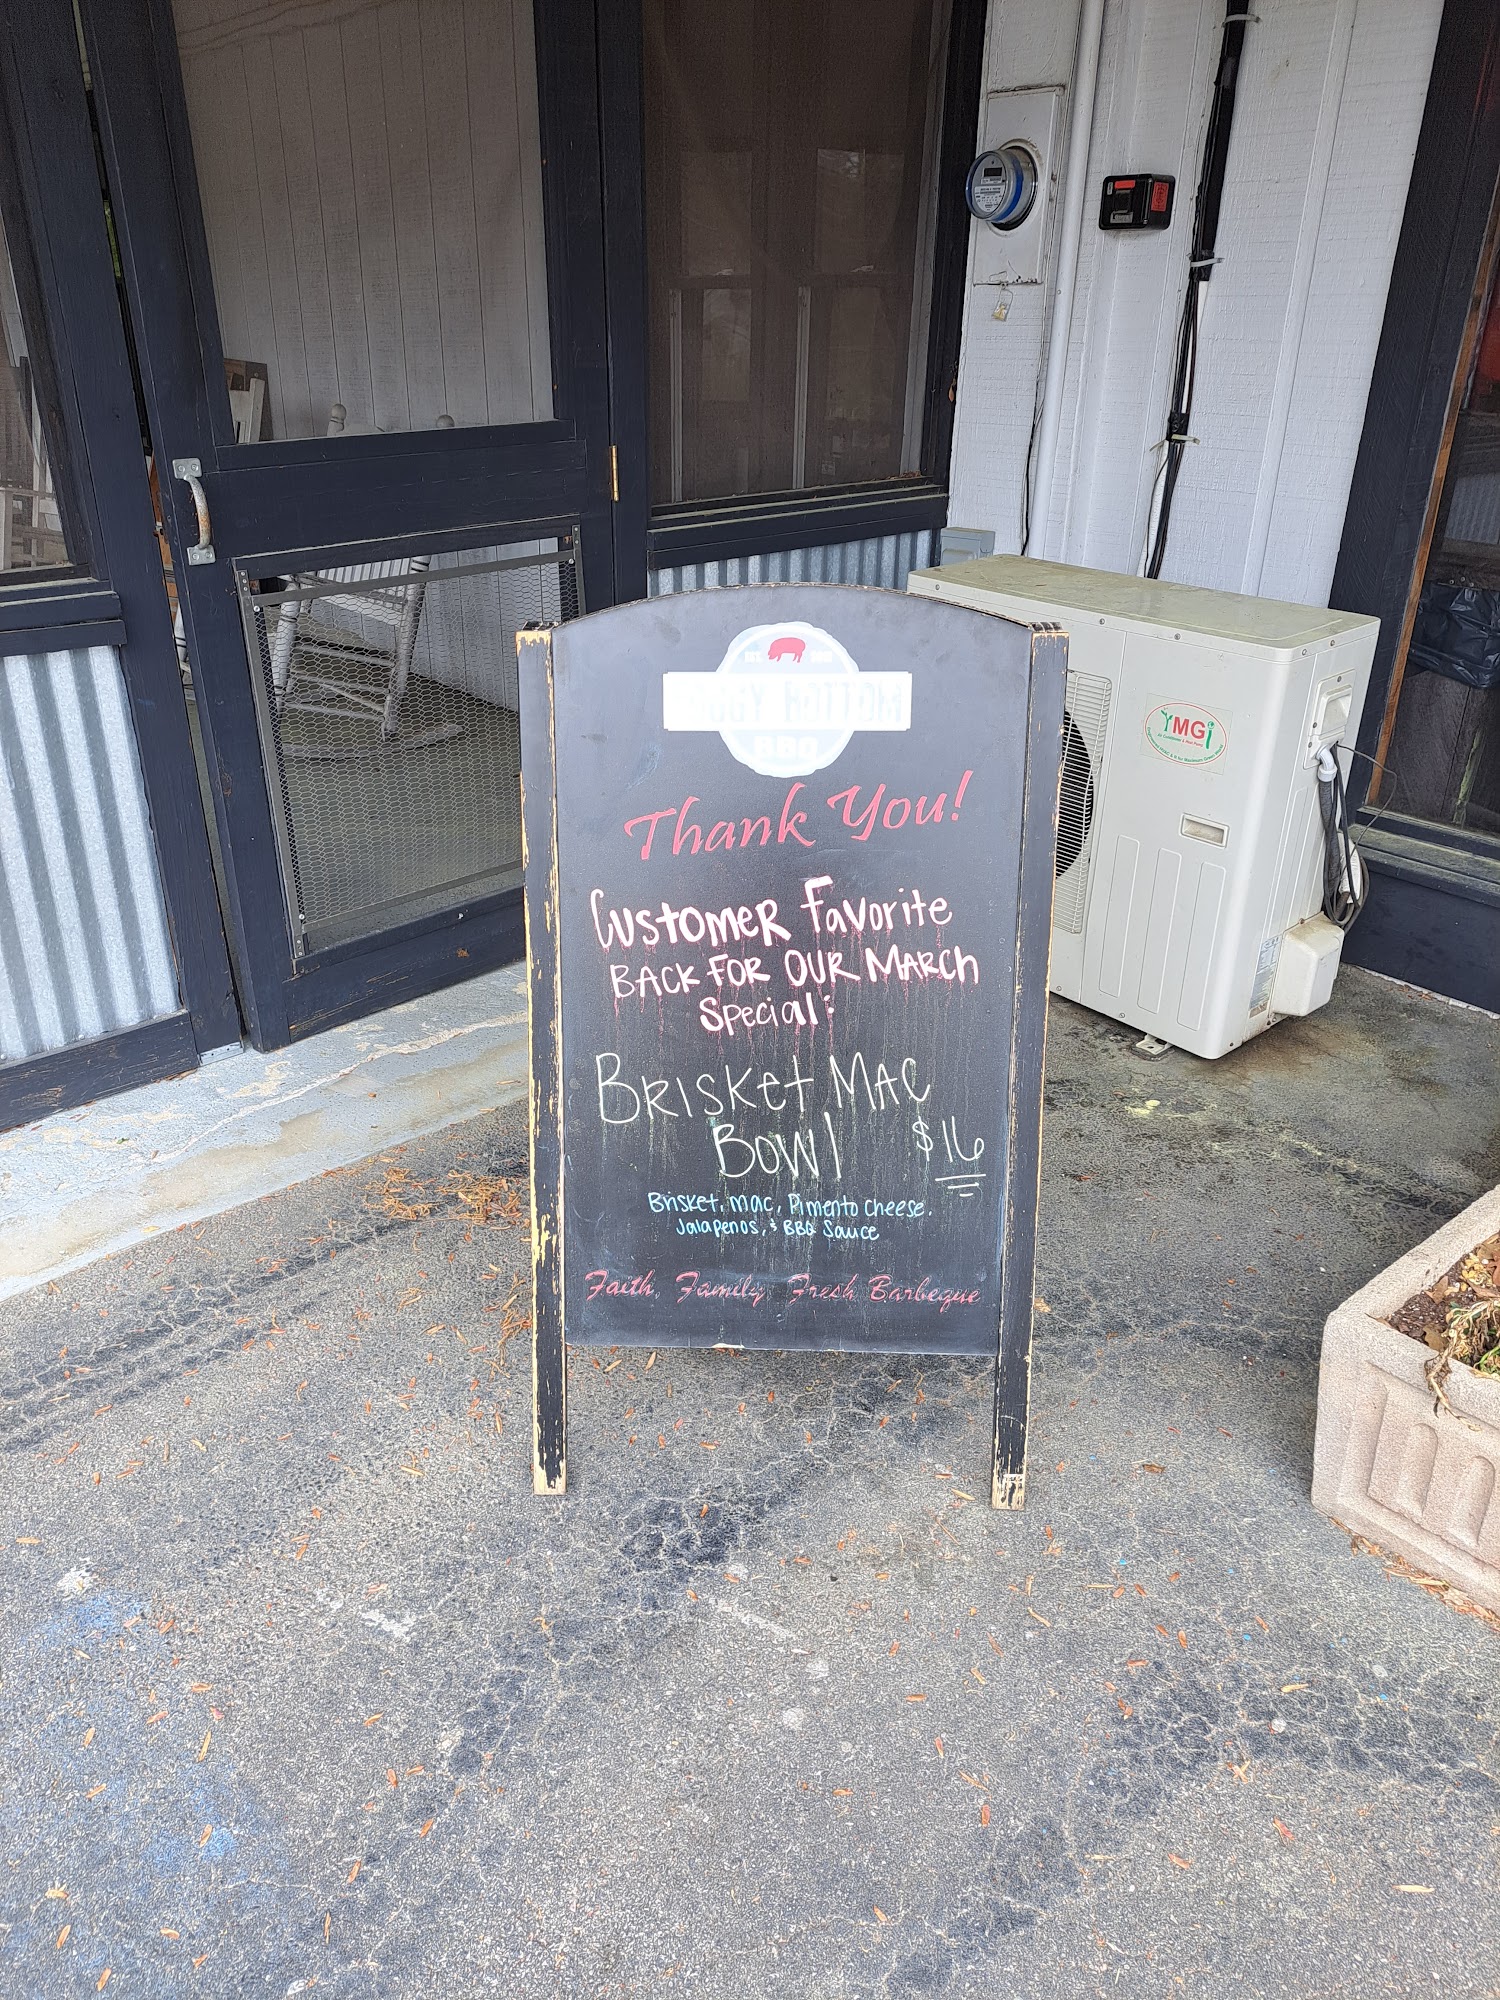 BOTTOM
BBQ
Thank You!
Customer Favorite
Back for our March
Special:
Brisket Mac
Bowl $16
Brisket, mac, Pimento cheese.
Jalapenos, & BBQ Sauce
Faith, Family, Fresh Barbeque
YMGI